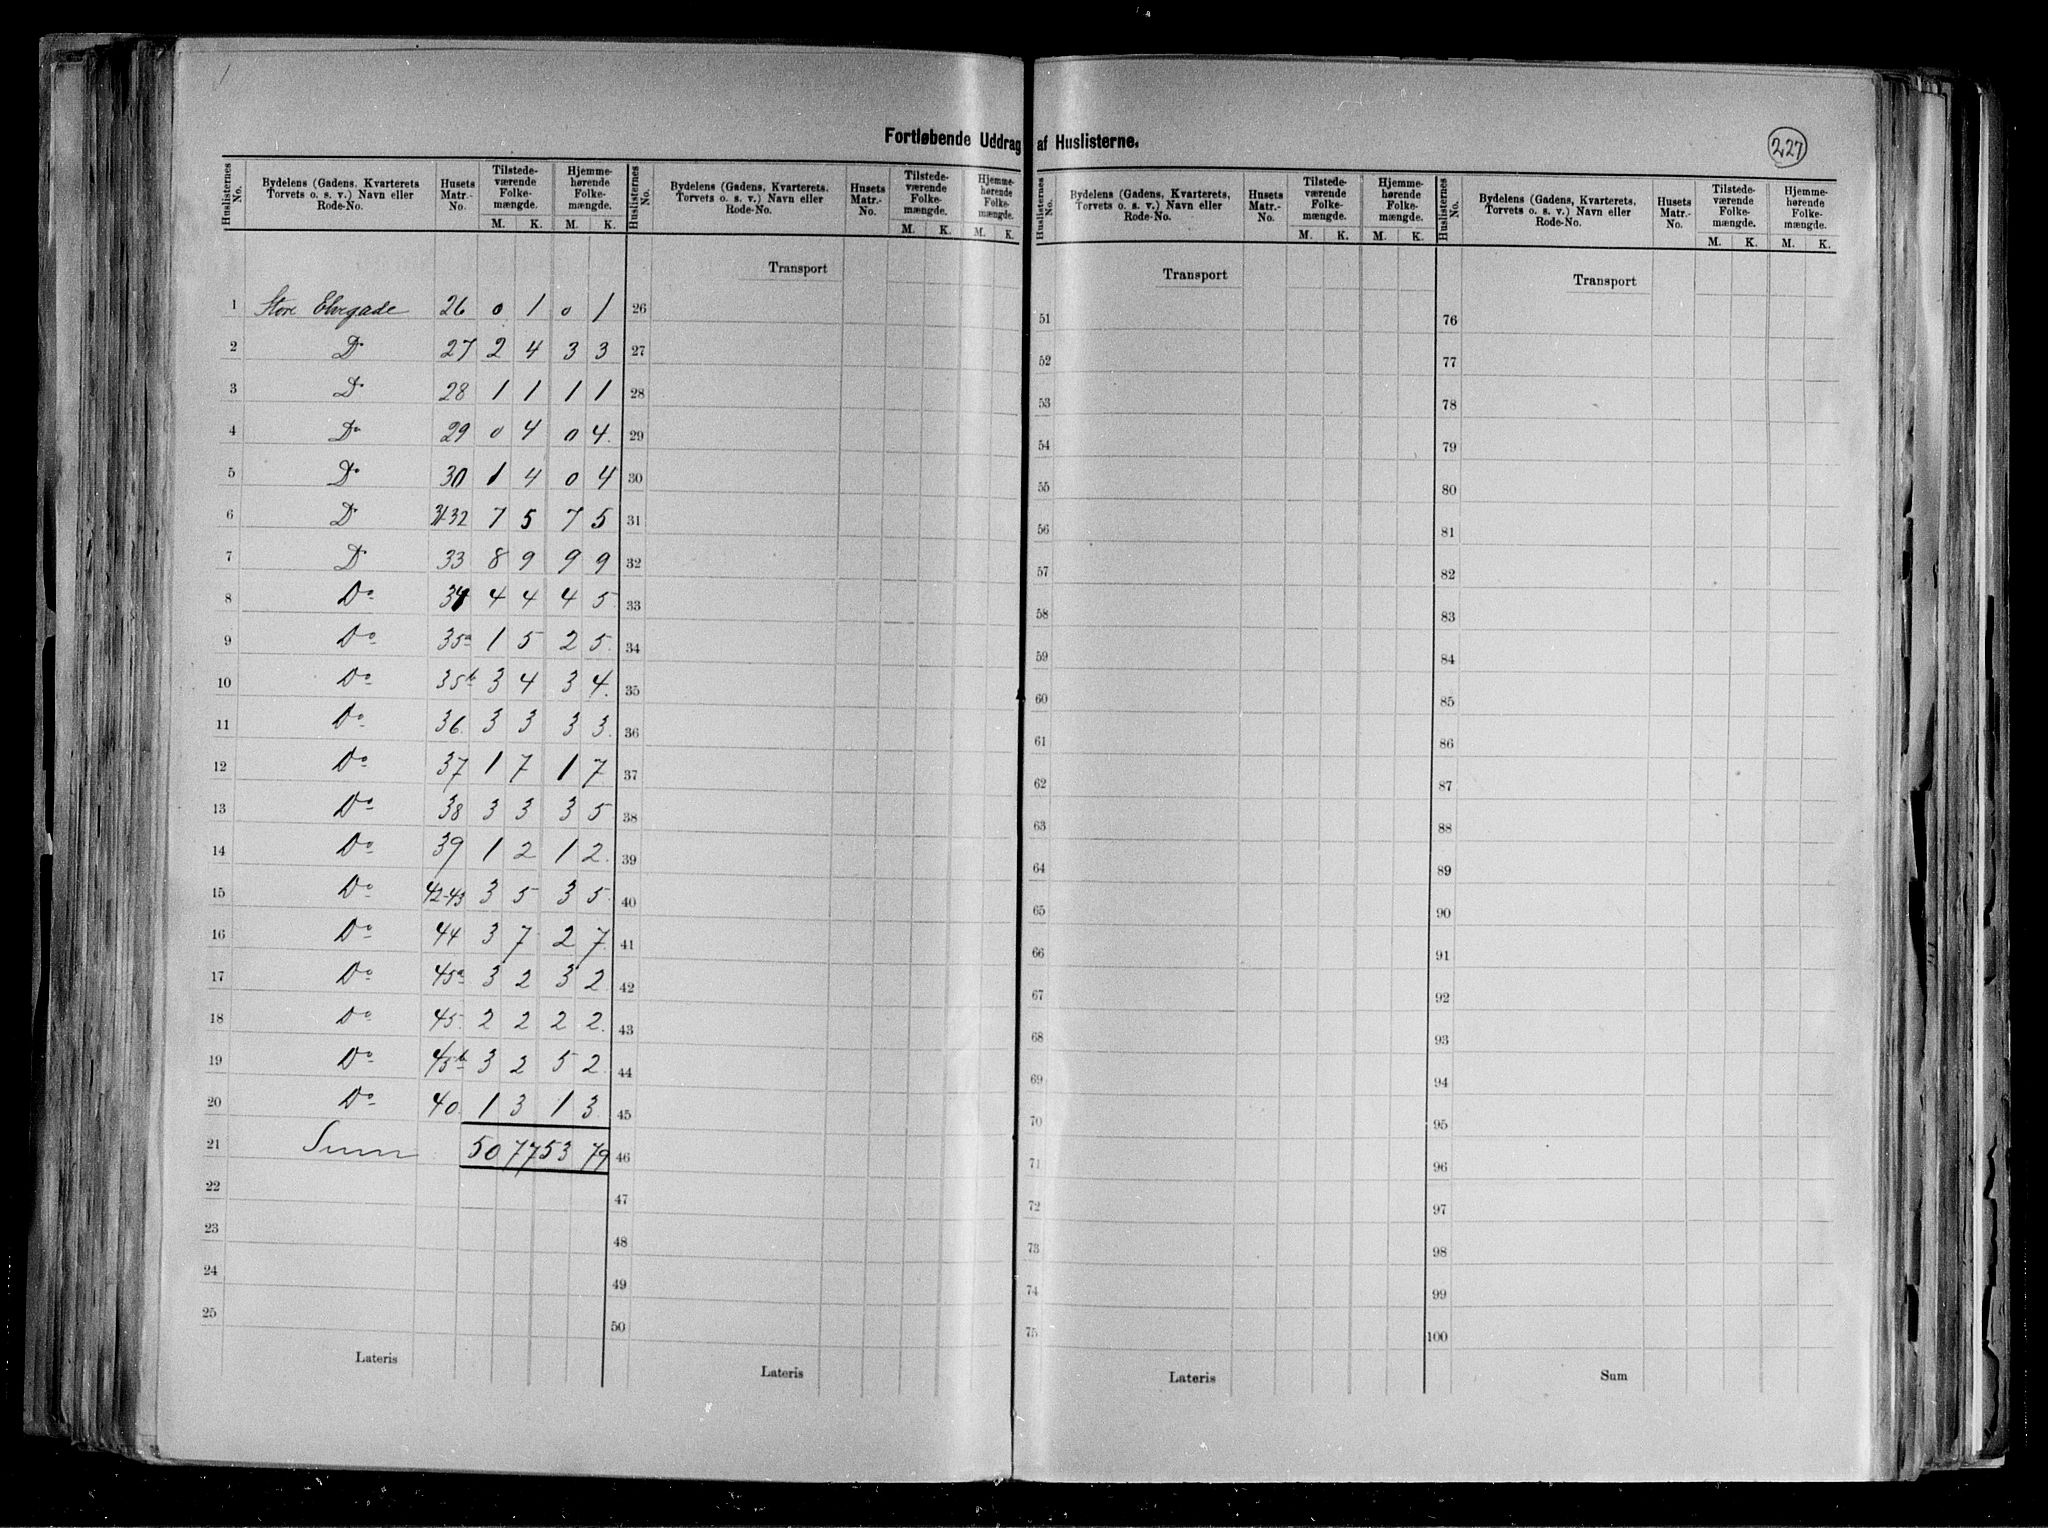 Fortløbende Uddrag af Huslisterne.
227
Huslisternes No. | Bydelens (Gadens, Kvarterets Torvets o. s. v.) Navn eller Rode-No. | Husets Matr.-No. | Tilstedeværende Folkemængde. M. K. | Hjemmehørende Folkemængde. M. K.
1 Store Elvegade 26 0 1 0 1
2 Do 27 2 4 3 3
3 Do 28 1 1 1 1
4 Do 29 0 4 0 4
5 Do 30 1 4 0 4
6 Do 31-32 7 5 7 5
7 Do 33 8 9 9 9
8 Do 34 4 4 4 5
9 Do 35a 1 5 2 5
10 Do 35b 3 4 3 4
11 Do 36 3 3 3 3
12 Do 37 1 7 1 7
13 Do 38 3 3 3 5
14 Do 39 1 2 1 2
15 Do 42-43 3 5 3 5
16 Do 44 3 7 2 7
17 Do 45a 3 2 3 2
18 Do 45 2 2 2 2
19 Do 45b 3 2 5 2
20 Do 40 1 3 1 3
21 Sum 50 77 53 79
22
23
24
25
Lateris
Huslisternes No. | Bydelens (Gadens, Kvarterets, Torvets o. s. v.) Navn eller Rode-No. | Husets Matr.-No. | Tilstedeværende Folkemængde. M. K. | Hjemmehørende Folkemængde. M. K.
Transport
26
27
28
29
30
31
32
33
34
35
36
37
38
39
40
41
42
43
44
45
46
47
48
49
50
Lateris
Huslisternes No. | Bydelens (Gadens, Kvarterets, Torvets o. s. v.) Navn eller Rode-No. | Husets Matr.-No. | Tilstedeværende Folkemængde. M. K. | Hjemmehørende Folkemængde. M. K.
Transport
51
52
53
54
55
56
57
58
59
60
61
62
63
64
65
66
67
68
69
70
71
72
73
74
75
Lateris
Huslisternes No. | Bydelens (Gadens, Kvarterets, Torvets o. s. v.) Navn eller Rode-No. | Husets Matr.-No. | Tilstedeværende Folkemængde. M. K. | Hjemmehørende Folkemængde. M. K.
Transport
76
77
78
79
80
81
82
83
84
85
86
87
88
89
90
91
92
93
94
95
96
97
98
99
100
Sum